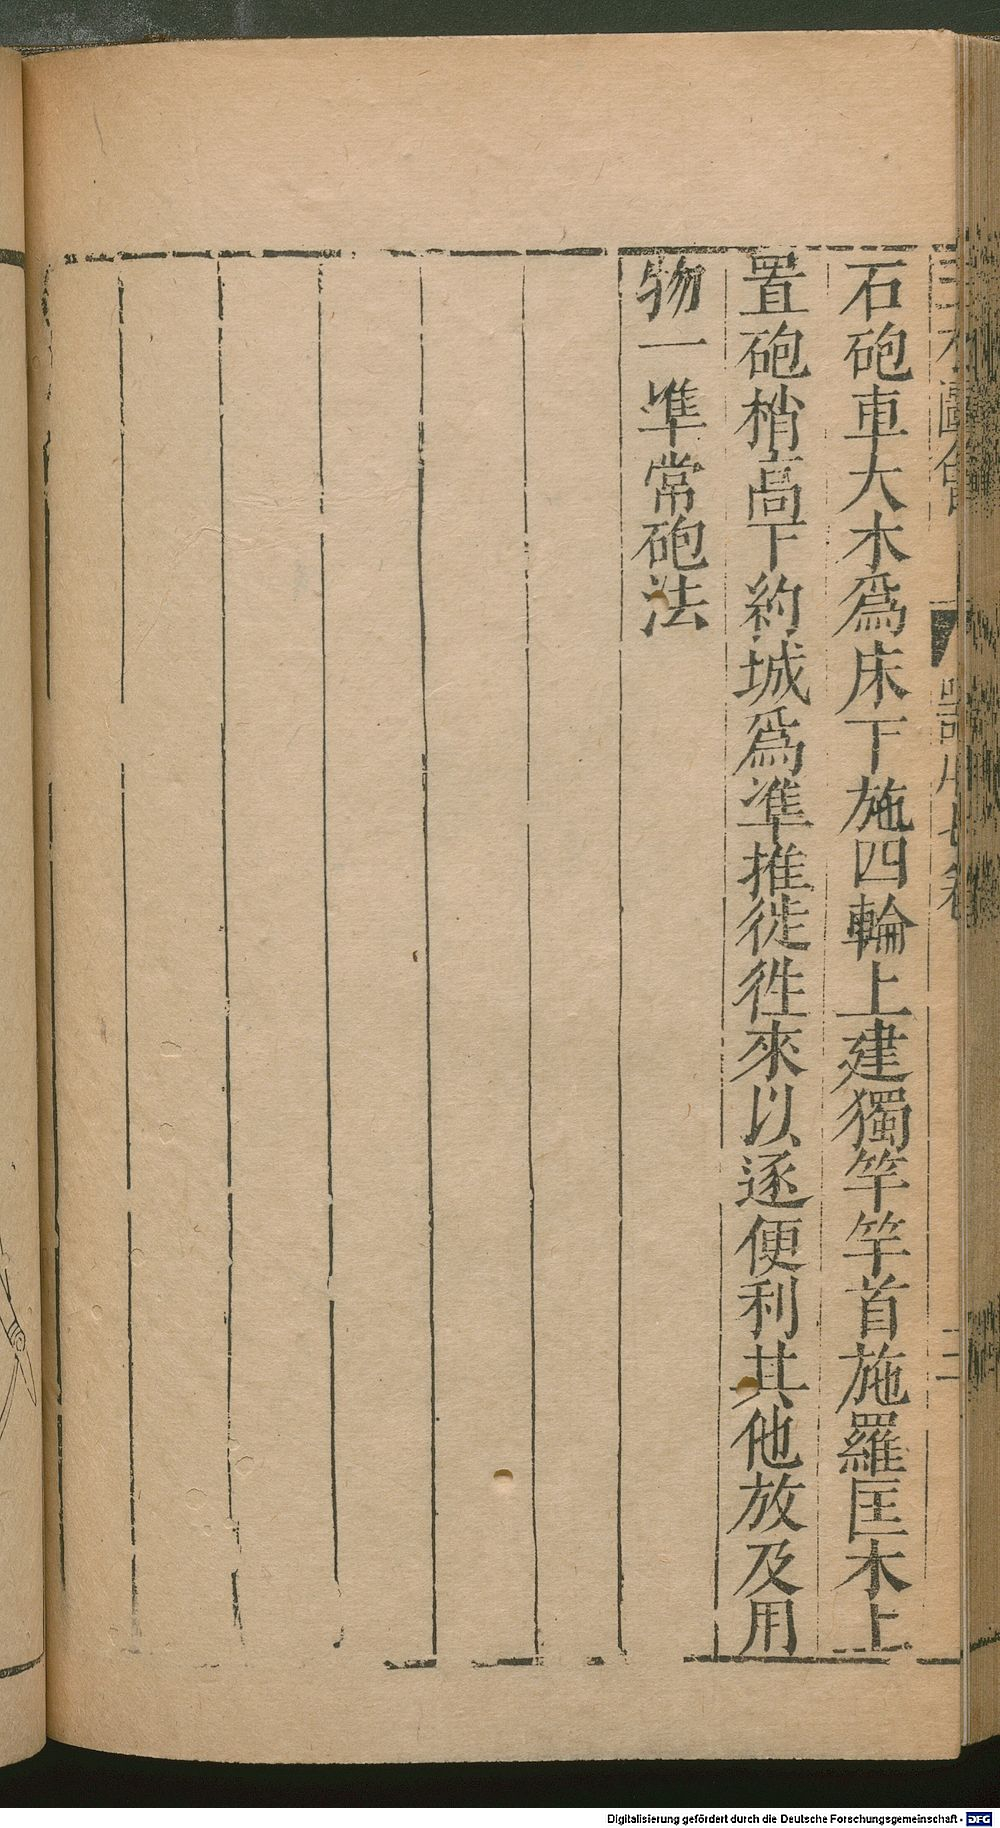 三才圖會
器用七卷
三
石砲車大木爲床下施四輪上建獨竿竿首施羅匡木上
置砲梢高下約城爲準推徙徃來以逐便利其他放及用
物一準常砲法
Digitalisierung gefördert durch die Deutsche Forschungsgemeinschaft - DFG